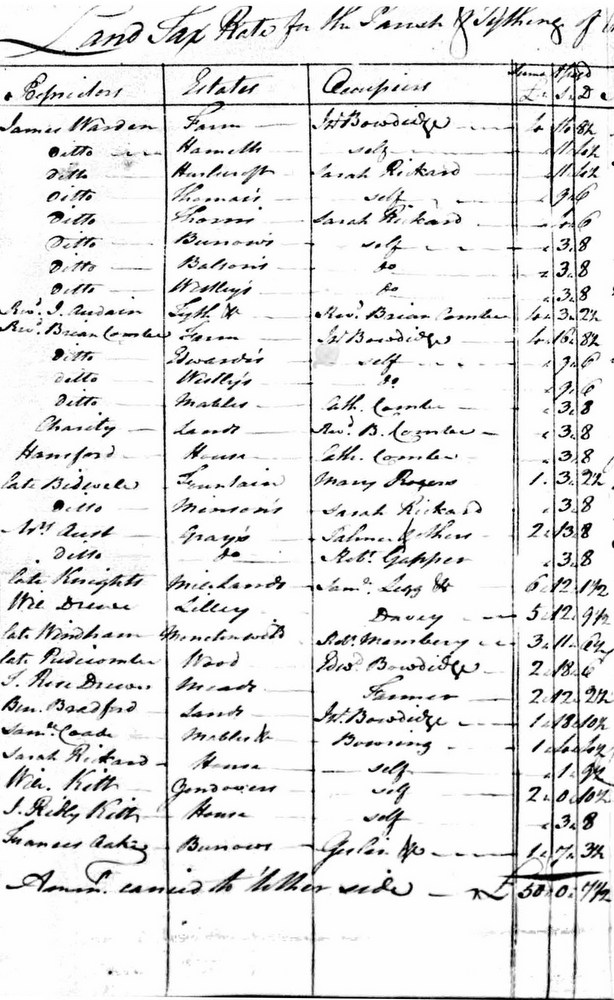 Land Tax Rate for the Parish & Tything of
Propriétors Estates Occupiers Sums Assd
£ S D
James Warden Farm Jn° Bowdidge 16 8½
Ditto Hamells self 11
Ditto Sarah Rickard 11
Ditto Thomas's self 9 6
Ditto Sarah Rickard 6
Ditto Burrows's self 3 8
Ditto Balson's do 3 8
Ditto Westley's do 3 8
Revd. J. Audain Tyth &c Revd. Brian Combe 3 2½
Revd. Brian Combe Farm Jn° Bowdidge 16 8½
Ditto Edwards's self 9 6
ditto Westley's do 9 6
Ditto Mables Cath. Combe 3 8
Charity Lands Revd. B. Combe 3 8
Hansford House Cath. Combe 3 8
late Bidwele Fountain Mary Rogers 1 3 2½
Ditto Minson's Sarah Rickard 3 8
Mrs Aust Gray's Palmer & others 2 13 8
Ditto do Robt. Gapper 3 8
late Knights Milelands Saml. Legg &c 6 12 1½
Wm Drewe Lilley Davey 5 12 9½
late Windham Robt. Mansbery 3 11
late Pudicombe Wood Edwd. Bowdidge 2 18 6
T. Rose Drewe Meads Farmer 2 12 2½
Ben. Bradford Lands Jn° Bowdidge 1 18 10½
Saml. Coade Mables &c Bowring 1
Sarah Rickard House self 1 9½
Wm. Kitt self 2 0 10½
J. Ridly Kitt House self 3 8
Frances Burrows Goslin &c 1 7 3½
Amnt. carried to t'other side £ 50 0 7½